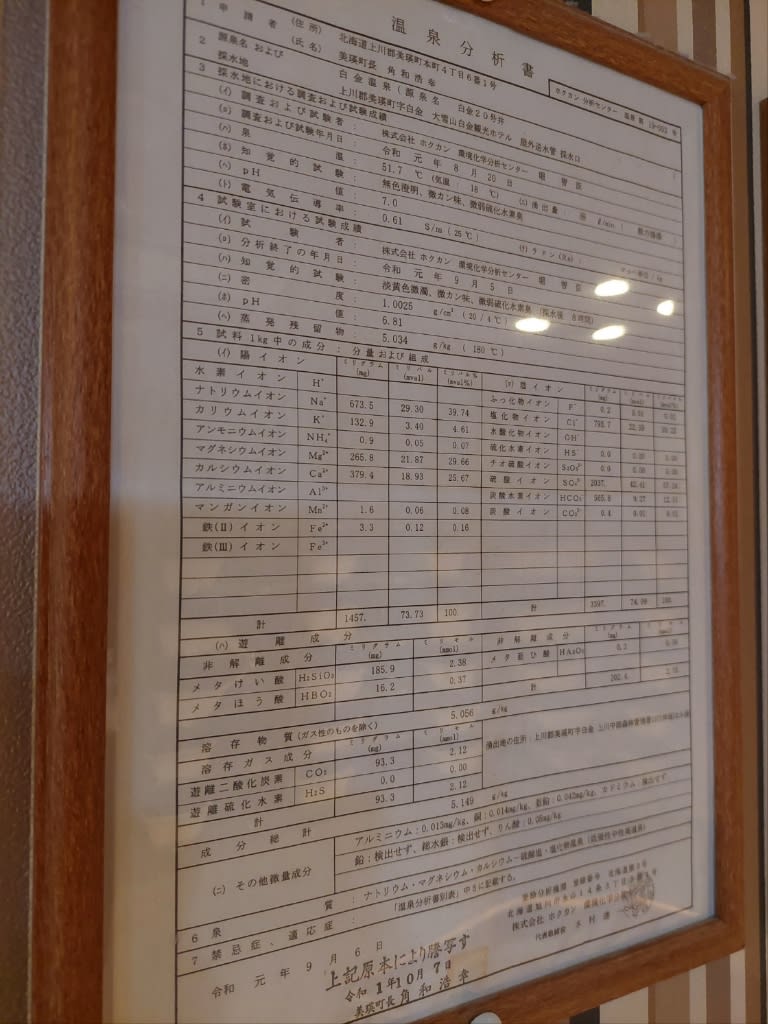 温泉分析書
ホクカン 分析センター
1 申請者 (住所) 北海道上川郡美瑛町本町4丁目6番1号
(氏名) 美瑛町長 角和浩幸
2 源泉名 および 採水地 白金温泉 (源泉名 白金20号井
上川郡美瑛町字白金 大雪山白金観光ホテル
3 採水地における調査および試験成績
(イ) 調査および試験者: 株式会社 ホクカン 環境化学分析センター
(ロ) 調査および試験年月日: 令和 元年 8月 20日
(ハ) 泉温: 51.7 ℃ (気温: 18 ℃) (ニ) 湧出量: ℓ/min
(ホ) 知覚的試験: 無色澄明、微カン味、微弱硫化水素臭
(ヘ) pH値: 7.0
(ト) 電気伝導率: 0.61 S/m (25℃) (チ) ラドン (Rn):
4 試験室における試験成績
(イ) 試験者: 株式会社 ホクカン 環境化学分析センター
(ロ) 分析終了の年月日: 令和 元年 9月 5日
(ハ) 知覚的試験: 淡黄色微濁、微カン味、微弱硫化水素臭
(ニ) 密度: 1.0025 g/cm³ (20/4℃)
(ホ) pH値: 6.81
(ヘ) 蒸発残留物: 5.034 g/kg (180℃)
5 試料1kg中の成分: 分量および組成
(イ) 陽イオン ミリグラム (mg) ミリバル (mval) ミリバル% (mval%)
水素イオン H⁺
ナトリウムイオン Na⁺ 673.5 29.30 39.74
カリウムイオン K⁺ 132.9 3.40 4.61
アンモニウムイオン NH₄⁺ 0.9 0.05 0.07
マグネシウムイオン Mg²⁺ 265.8 21.87 29.66
カルシウムイオン Ca²⁺ 379.4 18.93 25.67
アルミニウムイオン Al³⁺
マンガンイオン Mn²⁺ 1.6 0.06 0.08
鉄(Ⅱ)イオン Fe²⁺ 3.3 0.12 0.16
鉄(Ⅲ)イオン Fe³⁺
計 1457. 73.73 100.
(ロ) 陰イオン ミリグラム (mg) ミリバル (mval) ミリバル% (mval%)
ふっ化物イオン F⁻ 0.2
塩化物イオン Cl⁻
水酸化物イオン OH⁻
硫化水素イオン HS⁻ 0.0 0.00 0.00
チオ硫酸イオン S₂O₃²⁻ 0.0 0.00 0.00
硫酸イオン SO₄²⁻ 2037.
炭酸水素イオン HCO₃⁻ 565.8 9.27
炭酸イオン CO₃²⁻ 0.4 0.01
計 3397. 100.
(ハ) 遊離成分
非解離成分 ミリグラム (mg) ミリモル (mmol)
メタけい酸 H₂SiO₃ 185.9 2.38
メタほう酸 HBO₂ 16.2 0.37
非解離成分 ミリグラム (mg) ミリモル (mmol)
メタ亜ひ酸 HAsO₂ 0.2
計 202.4
溶存物質 (ガス性のものを除く) 5.056 g/kg
溶存ガス成分 ミリグラム (mg) ミリモル (mmol)
遊離二酸化炭素 CO₂ 93.3 2.12
遊離硫化水素 H₂S 0.0 0.00
計 93.3 2.12
湧出地の住所: 上川郡美瑛町字白金
成分総計 5.149 g/kg
(ニ) その他微量成分 アルミニウム: 0.013mg/kg、銅: 0.014mg/kg、亜鉛: 0.042mg/kg、カドミウム: 検出せず
鉛: 検出せず、総水銀: 検出せず、りん酸: 0.05mg/kg
6 泉質: ナトリウム・マグネシウム・カルシウム-硫酸塩・塩化物温泉
7 禁忌症、適応症: 「温泉分析書別表」中5に記載する。
令和 元年 9月 6日
株式会社 ホクカン
上記原本により謄写す
令和 1年10月 7日
美瑛町長 角和浩幸